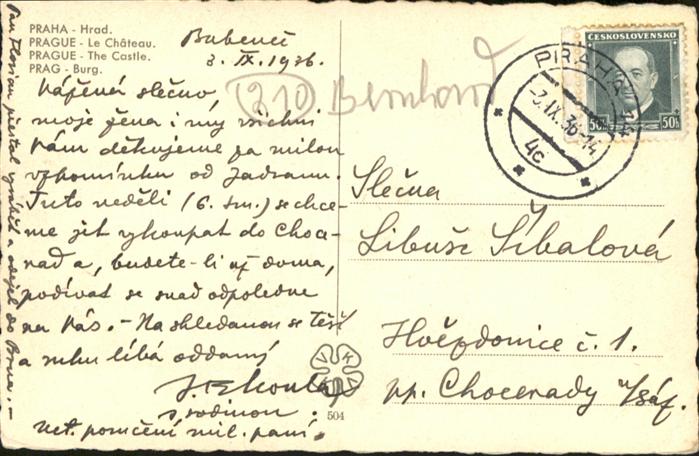 PRAHA - Hrad.
PRAGUE - Le Château.
PRAGUE - The Castle.
PRAG - Burg.
Bubeneč
3. IX. 1936.
Vážená slečno
moje žena i my všichni
Vám děkujeme za milou
vzpomínku od Jadranu.
Tuto neděli (6. t.m.) se chce-
me jít vykoupat do Choce-
rad a, budete-li už doma,
podívat se snad odpoledne
na Vás. - Na shledanou se těší
a ruku líbá oddaný
s rodinou.
Uct. poručení mil. paní.
Pan Florian přestal a odejel do Brna. -
210
Bernhard
ČESKOSLOVENSKO
50h 50h
PRAHA
-3.IX.36-14
4c
Slečna
Libuše Šibalová
Hvězdonice č. 1.
pp. Chocerady n/Sáz.
VKKV
504